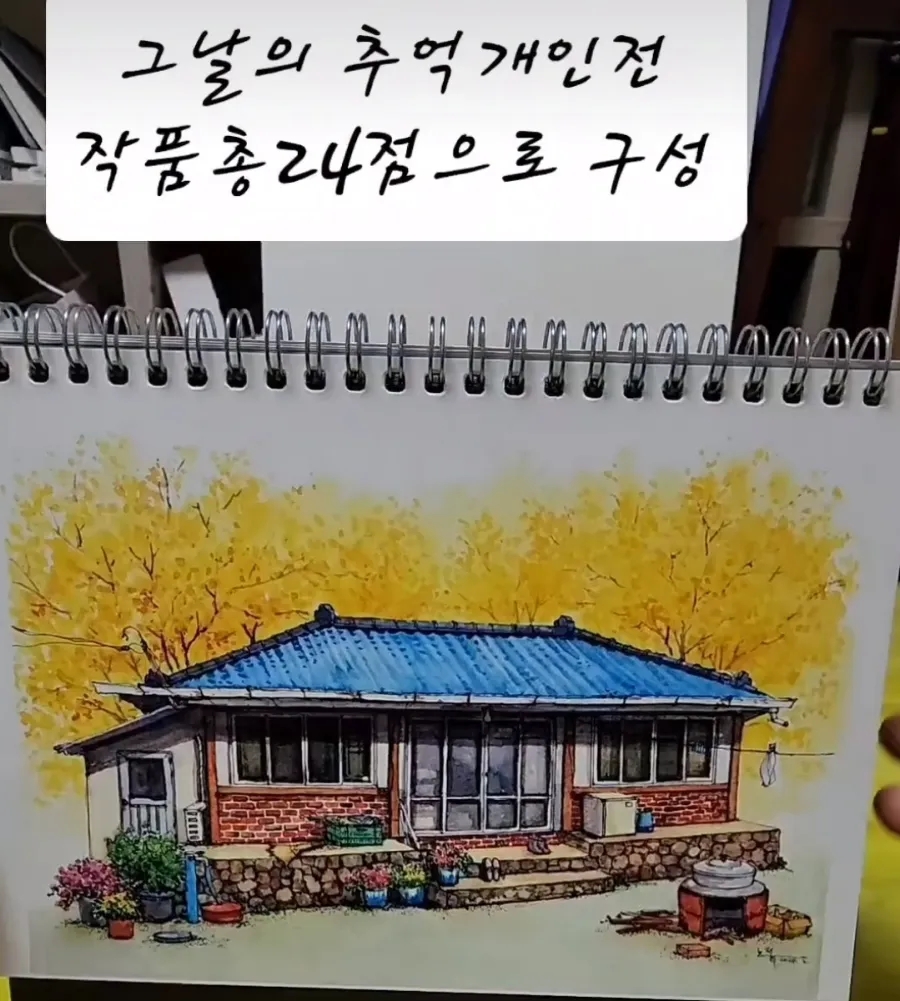 그날의 추억개인전
작품총24점으로 구성